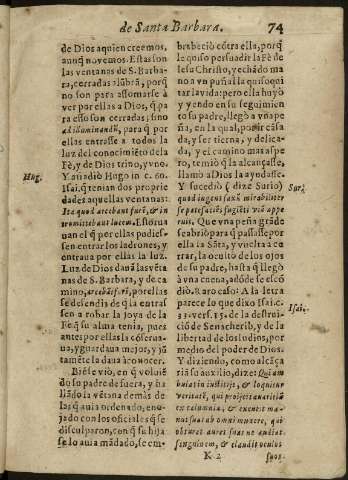 de Santa Barbara. 74
de Dios aquien creemos,
aunq̃ no vemos. Estas son
las ventanas de S. Barba-
ra, cerradas a lũbrã, porq̃
no son para assomarse à
ver por ellas a Dios, q̃ pa
ra esso son cerradas; sino
ad illuminandũ, para q̃ por
ellas entrasse a todos la
luz del conocimiẽto de la
Fè, y de Dios trino, y vno.
Y añadiò Hugo in c. 60.
Hug.
Isai. q̃ tenian dos proprie
dades aquellas ventanas:
Ita quod arcebant furẽ, & in
tromittebant lucem. Estorua
uan el q̃ por ellas pudies-
sen entrar los ladrones, y
entraua por ellas la luz.
Luz de Dios dauã las vẽta
nas de S. Barbara, y de ca
mino, arcebãt furẽ, por ellas
se defendia de q̃ la entras
sen a robar la joya de la
Fe q̃ su alma tenia, pues
antes por ellas la cõserua-
ua, y guardaua mejor, y jũ
tamẽte la daua à conocer.
Biẽ se viò, en q̃ voluiẽ
do su padre de fuera, y ha
llãdo la vẽtana demàs de
las q̃ auia ordenado, eno-
jado con los oficiales q̃ se
disculparon, con q̃ su hija
se lo auia mãdado, se em-
brabeciò cõtra ella, porq̃
le quiso persuadir la Fè de
Iesu Christo, y echãdo ma
no a vn puñal la quiso qui
tar la vida: pero ella huyò
y yendo en su seguimien
to su padre, llegò a vna pe
ña, en la qual, por ir cãsa
da, y ser tierna, y delica-
da, y el camino mas aspe
ro, temiò q̃ la alcançasse,
llamò a Dios la ayudasse.
Y sucediò (dize Surio)
Sur.
quod ingens saxũ mirabiliter
se patefaciẽs fugiẽti viã appe
ruit. Que vna peña grãde
se abriò para q̃ passasse por
ella la Sãta, y vuelta a ce
rrar, la ocultò de los ojos
de su padre, hasta q̃ llegò
à vna cueua, adõde se escõ
diò. Raro caso: A la letra
parece lo que dixo Isai. c.
33. vers. 15. de la destrui-
Isai.
ciò de Senacherib, y de la
libertad de los judios, por
medio del poder de Dios.
Y diziendo, como alcãça
ria su auxilio, dize: Qui am
bulat in iustitijs, & loquitur
veritatẽ, qui projicit auaritiã
ex calumnia, & excutit ma-
nus suas ab omni munere, qui
obturat aures suas ne audiat
sanguinem, & claudit oculos
K 2 suos